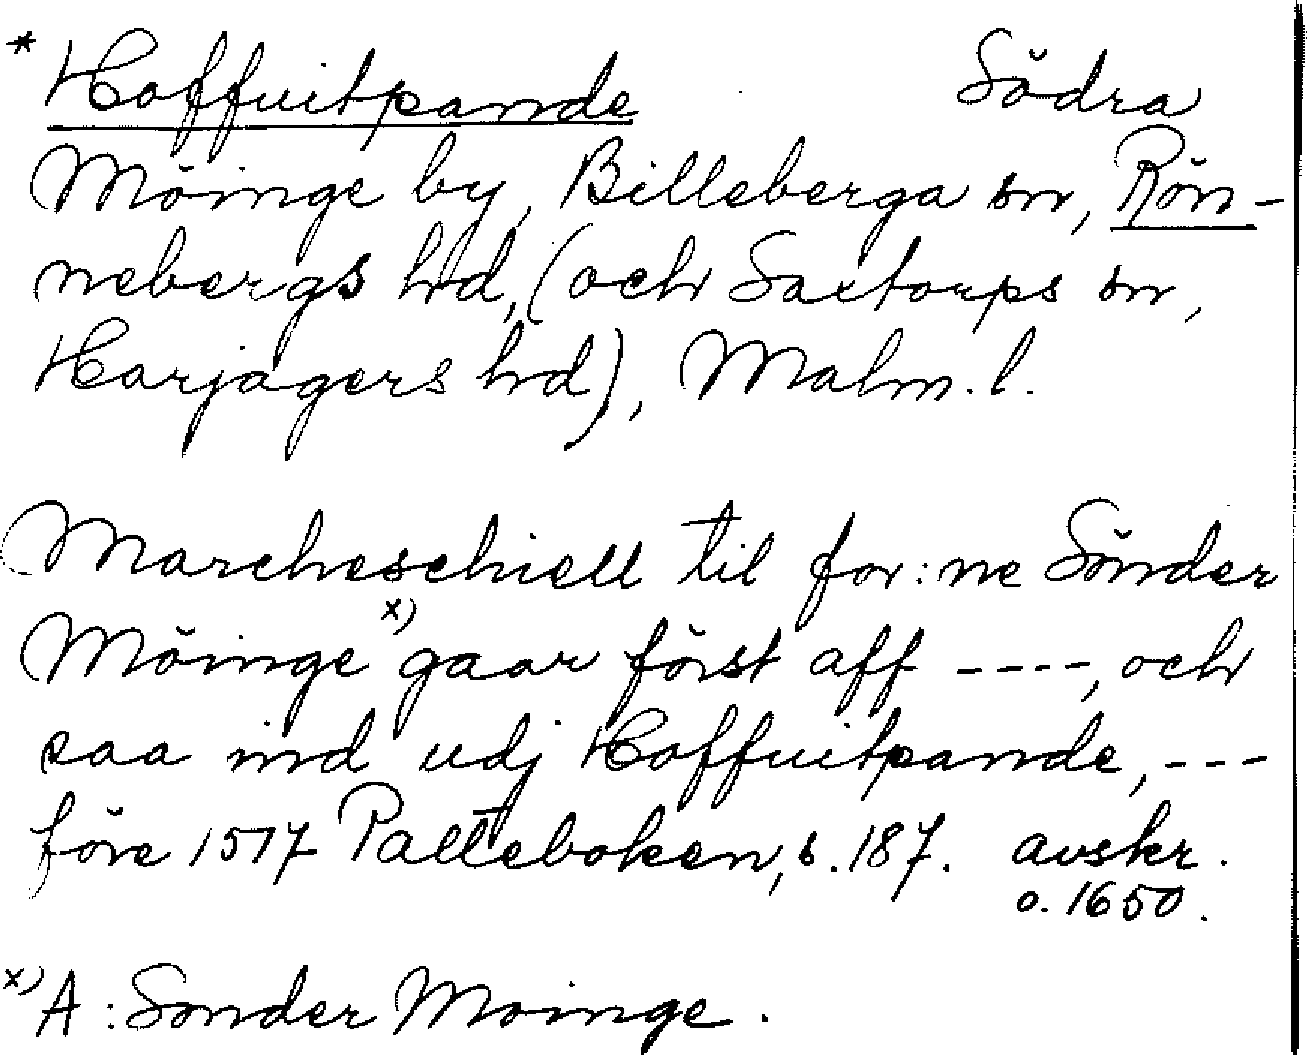 * Hoffuitpande Södra
Möinge by, Billeberga sn, Rön-
nebergs hd, (och Saxtorps sn,
Harjagers hd), Malm. l.
Marcheschiell til for:ne Sönder
Möinge x) gaar först aff ----, och
saa ind udj Hoffuitpande, ---
före 1517 Palteboken, s. 187. avskr.
o. 1650.
x) A: Sonder Moinge.